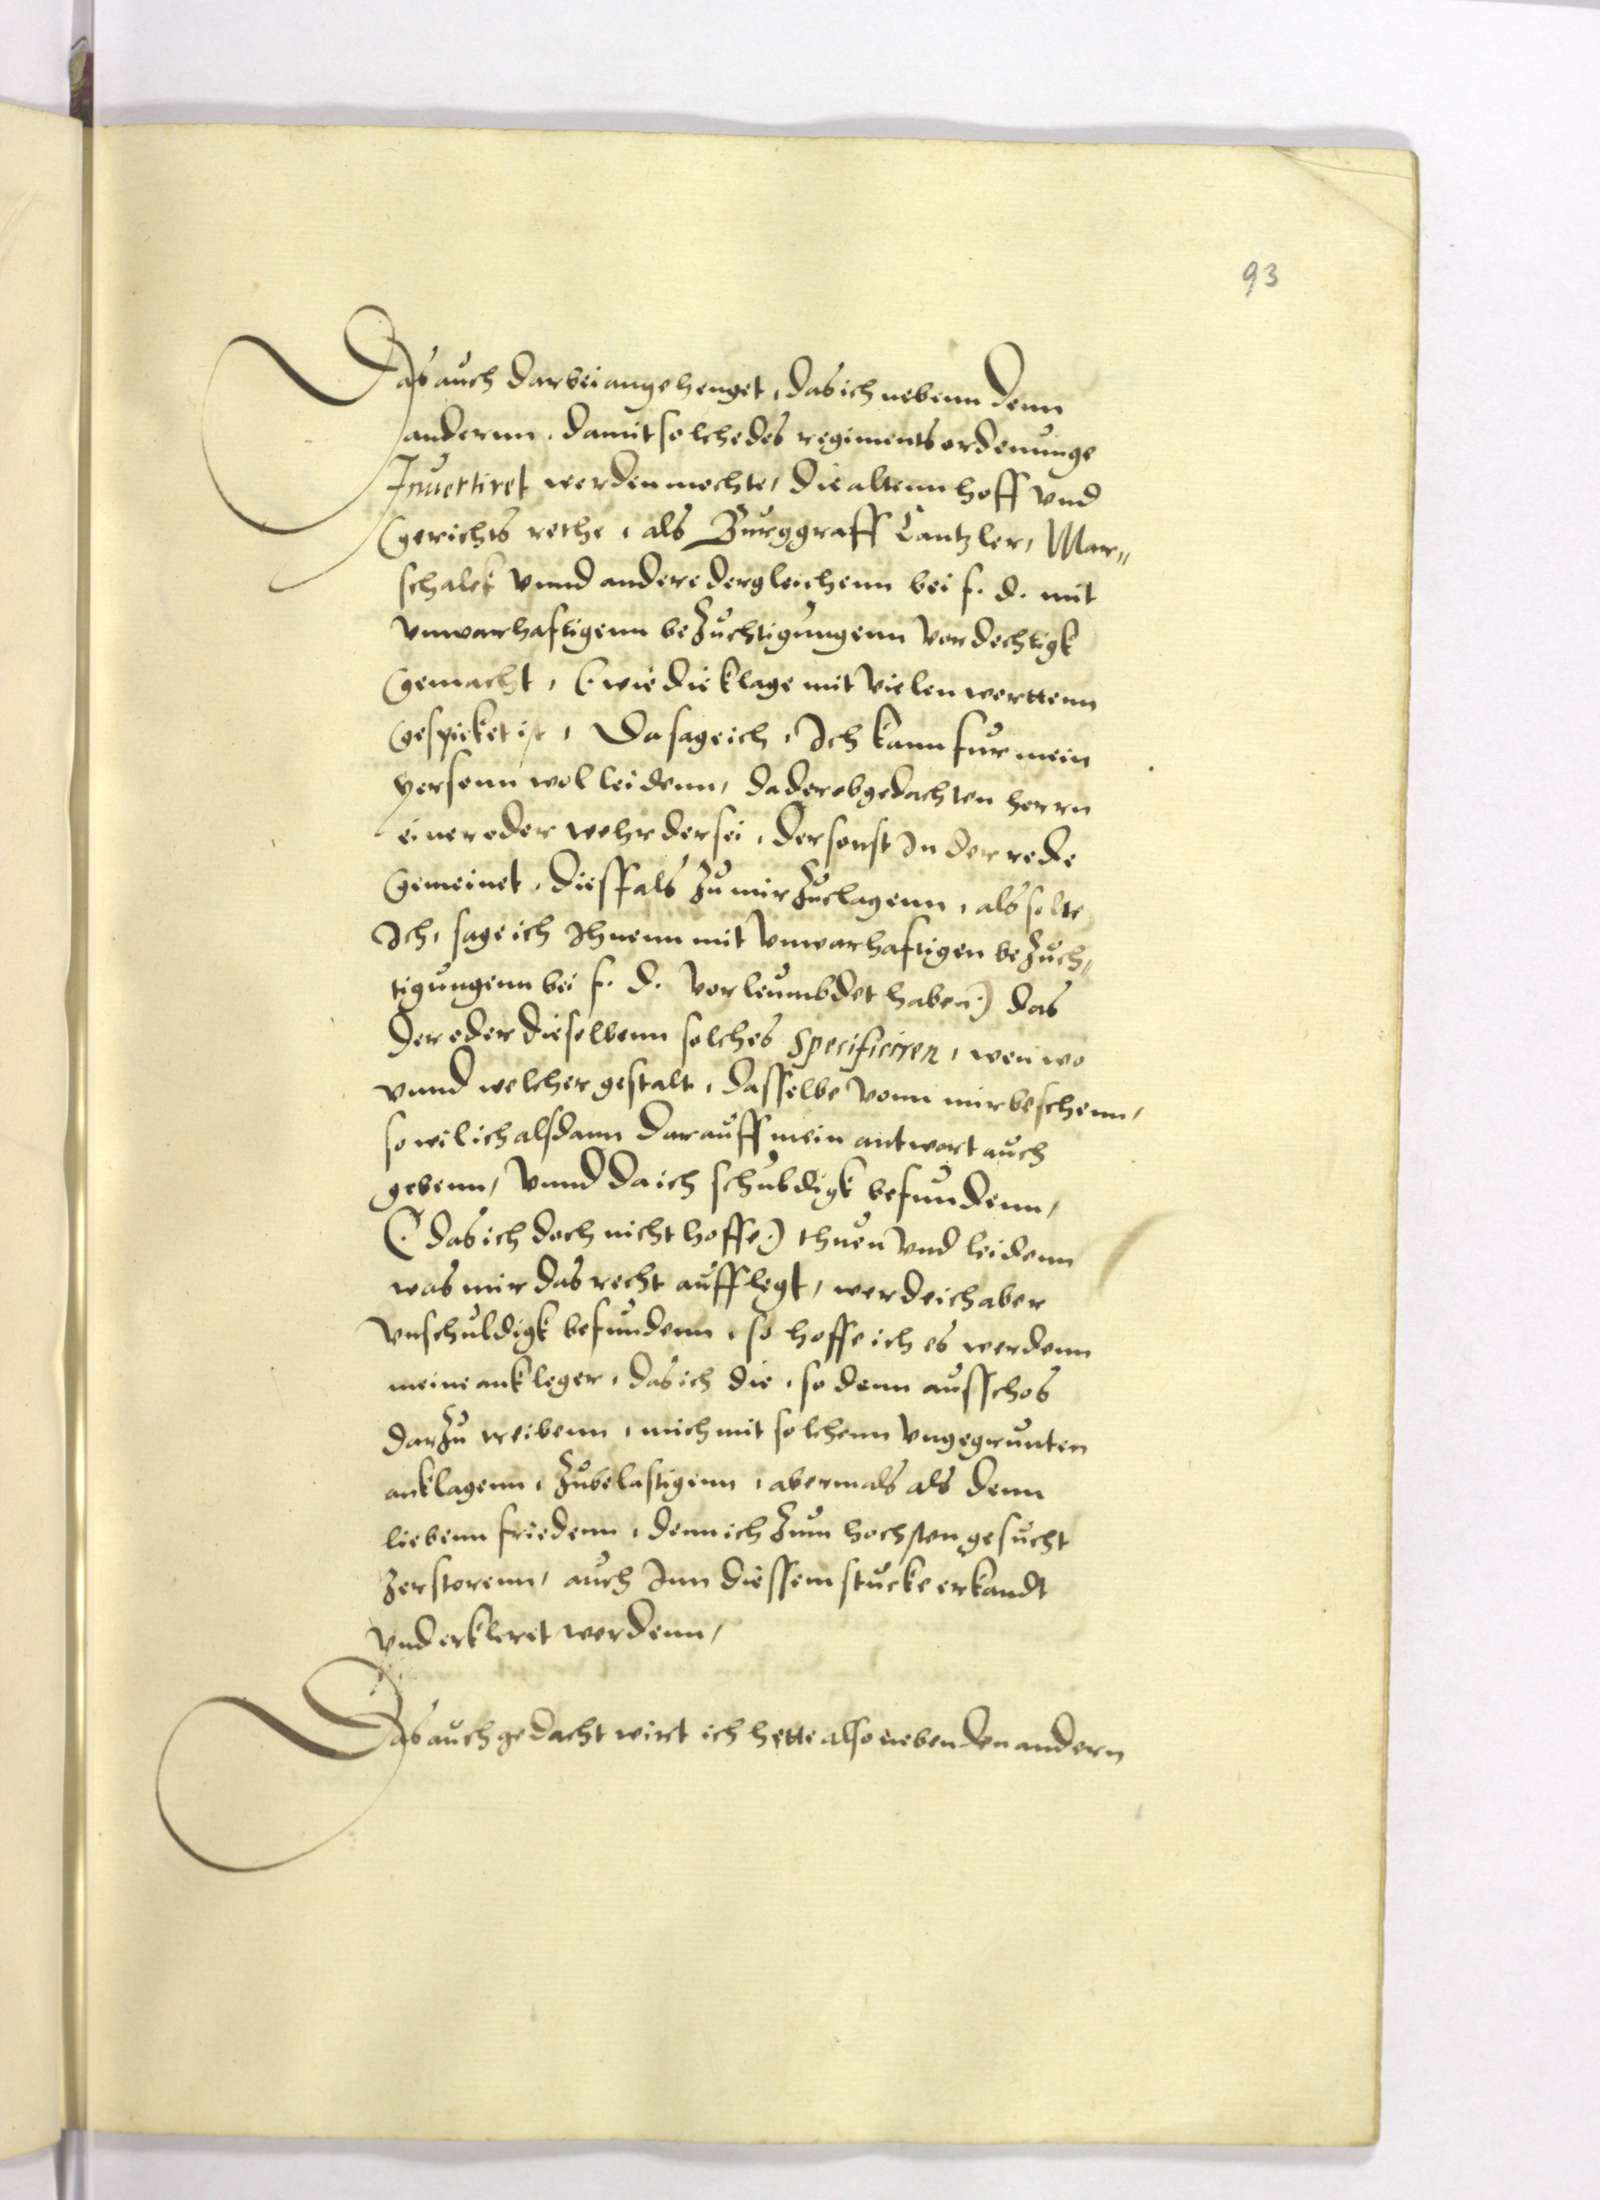 93
Das auch darbei angehenget, das ich nebenn denn
anderenn, damit solche des regiments ordenunge
Invertiret werden mochte, die altenn hoff vnd
Gerichts rethe, als Burggraff Cantzler, Mar„
schalck vnnd andere dergleichenn bei f. d. mit
vnwarhaftigenn beZuchtigungenn vordechtigk
Gemacht, (wie die klage mit vielen worttenn
Gespicket ist, Da sage ich, Ich kann fur mein
person wol leidenn, da der obgedachten herrn
einer oder wehr der sei, der sonst In der rede
Gemeinet, diessfals Zu mir Zuclagenn, als solte
Ich, sage ich Ihnenn mit vnwarhaftigen beZuch„
tigungenn bei f. d. vorleumbdet haben) das
der oder dieselbenn solches specificiren, wen wo
vnnd welcher gestalt, dasselbe vonn mir beschenn,
so wil ich alsdann darauff mein antwort auch
gebenn, vnnd da ich schuldigk befundenn,
(das ich doch nicht hoffe) thuen vnd leidenn
was mir das recht aufflegt, werde ich aber
vnschuldigk befundenn, so hoffe ich es werdenn
meine ankleger, das ich die, so denn ausschos
darZu treibenn, mich mit solchenn vngegrunten
anklagenn, Zubelastigenn, abermals als denn
liebenn friedenn, denn ich Zum hochsten gesucht
Zerstorenn, auch Inn diessem stucke erkandt
vnd erkleret werdenn,
Das auch gedacht wirt ich hette also neben den andern